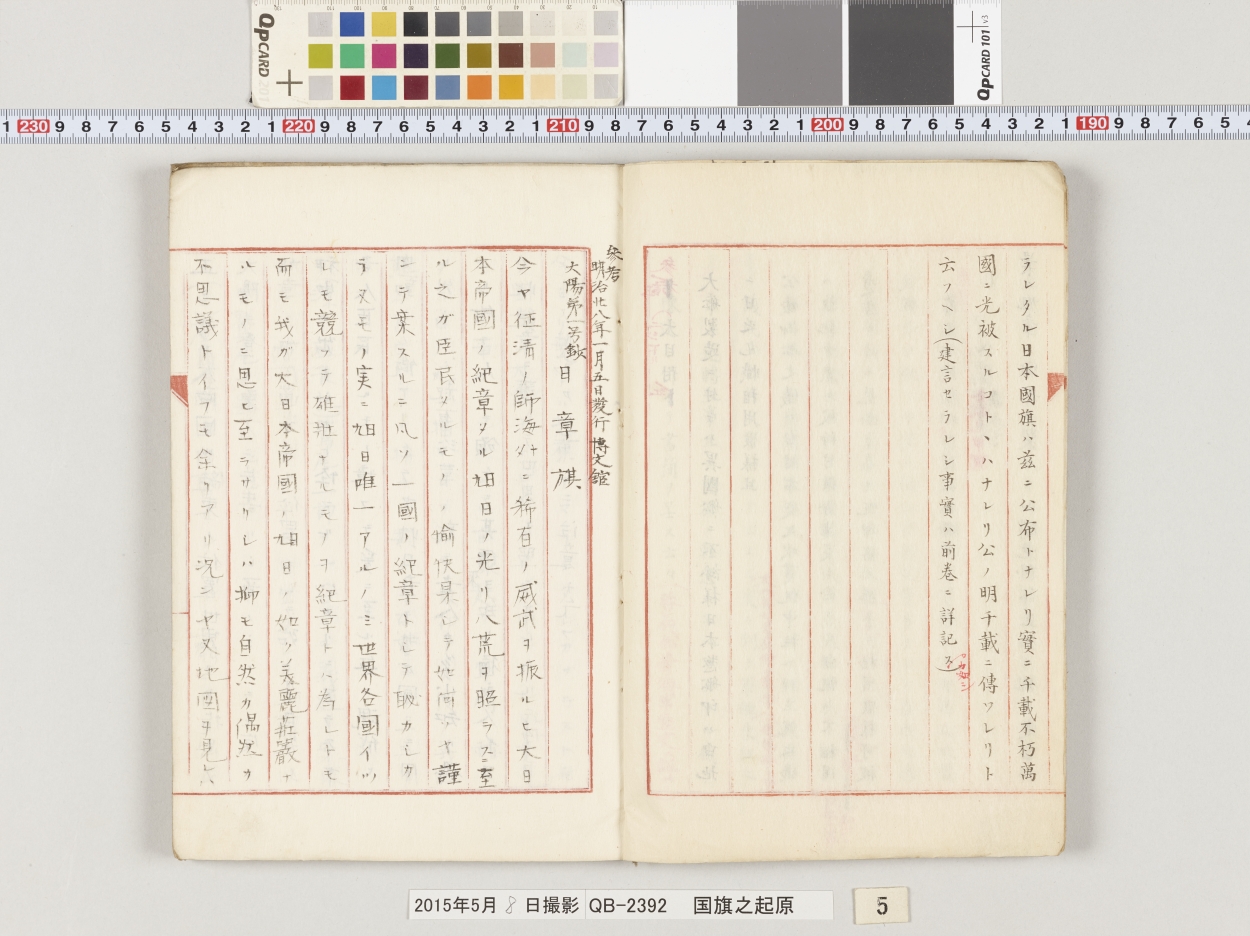 ラレタル日本國旗ハ茲ニ公布トナレリ實ニ千載不朽萬
國ニ光被スルコトヽハナレリ公ノ明千載ニ傳ソレリト
云フヘシ(建言セラレシ事實ハ前巻ニ詳記
参考
明治廿八年一月五日發行 博文館
大陽第一号鈔
日章旗
今ヤ征清ノ師海外ニ稀有ノ威武ヲ振ルヒ大日
本帝國ノ紀章タル旭日ノ光リ八荒ヲ照ラスニ至
ル之ガ臣民タルモノノ愉快果シテ如何ソヤ謹
ンテ案スルニ凡ソ一國ノ紀章トシテ敢カシカ
ラヌモノ実ニ旭日唯一アルノミ世界各國イツ
レモ競ツテ雄壯ナルモノヲ紀章トハ為セレトモ
而モ我ガ大日本帝國ノ旭日ノ如ク美麗荘嚴ナ
ルモノニ思ヒ至ラサリシハ抑モ自然カ偶然カ
不思議トイフモ余リアリ况ンヤ又地圖ヲ見レハ
QPCARD 101 v3
QPCARD 201
1 230 9 8 7 6 5 4 3 2 1 220 9 8 7 6 5 4 3 2 1 210 9 8 7 6 5 4 3 2 1 200 9 8 7 6 5 4 3 2 1 190 9 8 7 6 5 4
2015年5月8日撮影 QB-2392 国旗之起原
5